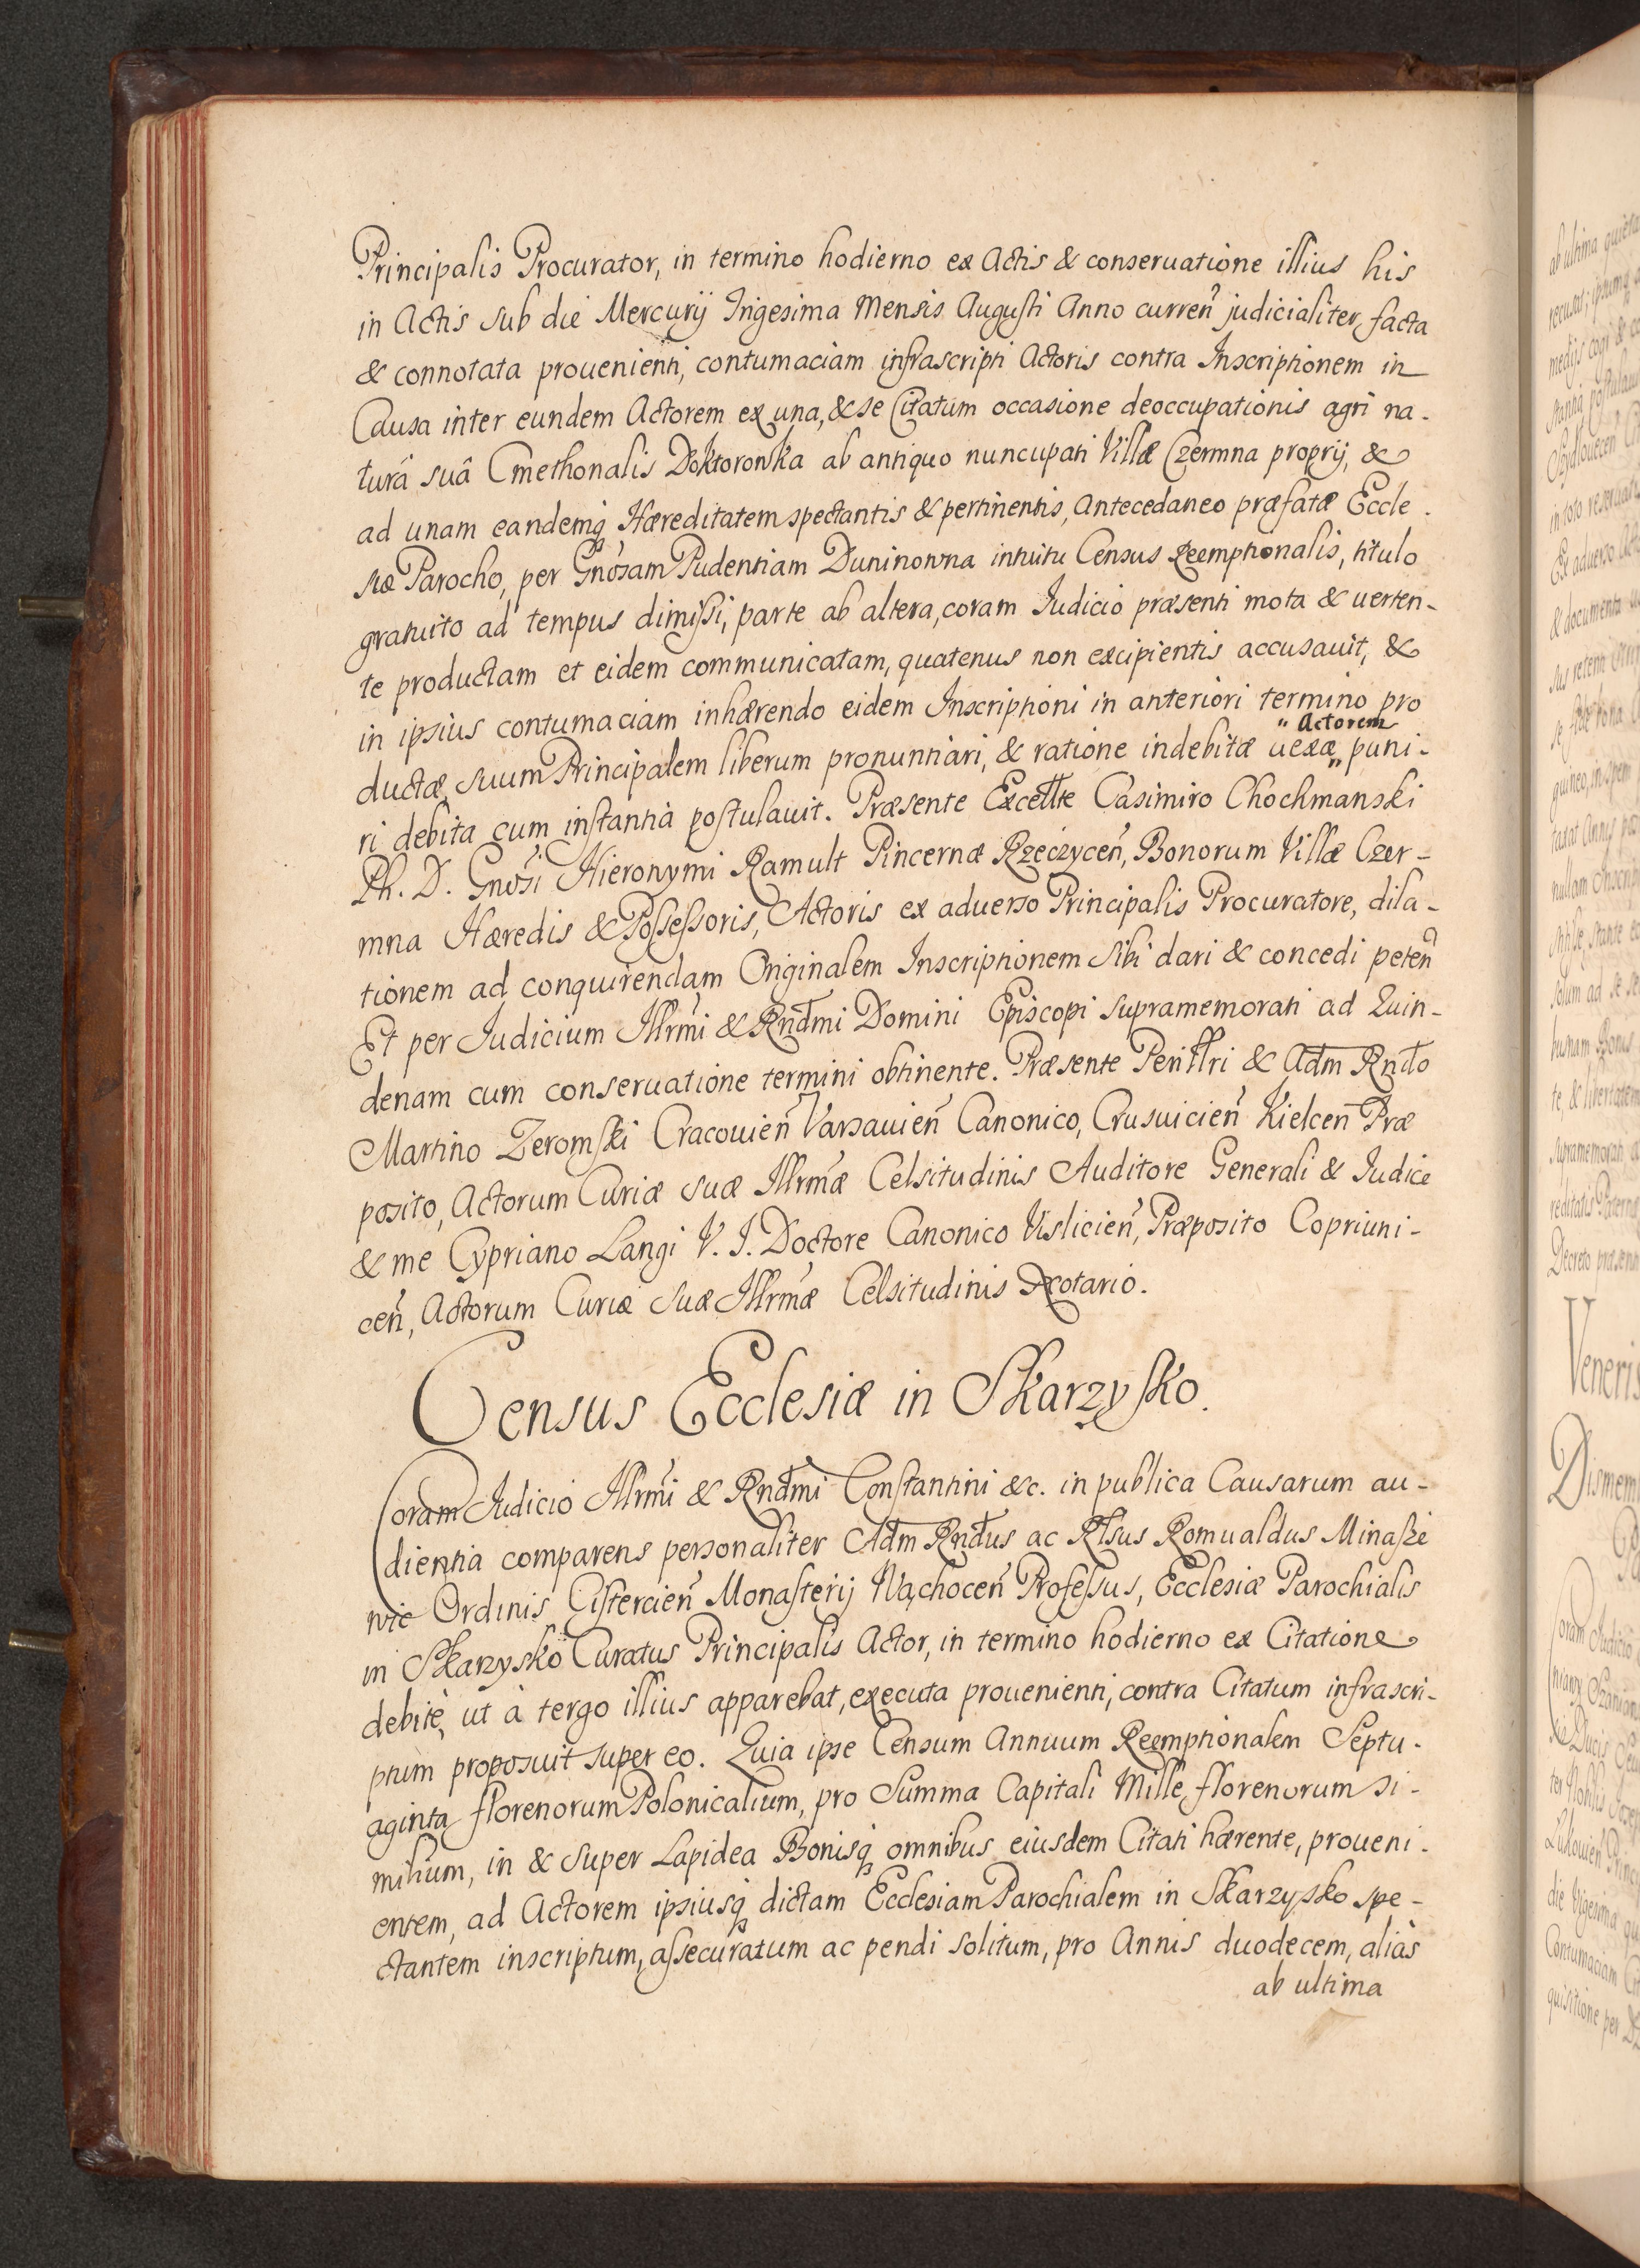 Principalis Procurator, in termino hodierno ex Actis & conseruatione illius his
in Actis sub die Mercurij Ingesima Mensis Augusti Anno curren̄ judicialiter facta
& connotata prouenienti, contumaciam infrascripti Actoris contra Inscriptionem in
Causa inter eundem Actorem ex una, & se Citatum occasione deoccupationis agri na-
turâ suâ Cmethonalis Doktorowka ab antiquo nuncupati Villæ Czermna proprij, &
ad unam eandemq́ Hæreditatem spectantis & pertinentis, Antecedaneo præfatæ Eccle-
siæ Parocho, per Gnōsam Pudentiam Duninowna intuitu Census Reemptionalis, titulo
gratuito ad tempus dimissi, parte ab altera, coram Iudicio præsenti mota & uerten-
te productam et eidem communicatam, quatenus non excipientis accusauit, &
in ipsius contumaciam inhærendo eidem Inscriptioni in anteriori termino pro
" Actorem
ductæ, suum Principalem liberum pronuntiari, & ratione indebitæ uexæ „ puni-
ri debita cum instantia postulauit. Præsente Excellte Casimiro Chochmanski
Ph. D. Gnōsi Hieronymi Ramult Pincernæ Rzeczycen̄, Bonorum Villæ Czer-
mna Hæredis & Possessoris, Actoris ex aduerso Principalis Procuratore, dila-
tionem ad conquirendam Originalem Inscriptionem sibi dari & concedi peten̄
Et per Iudicium Illrm̄i & Rnd̄mi Domini Episcopi supramemorati ad Quin-
denam cum conseruatione termini obtinente. Præsente Perillri & Adm Rndo
Martino Zeromski Cracouien̄ Varsauien̄ Canonico, Crusuicien̄ Kielcen̄ Præ
posito, Actorum Curiæ suæ Illrm̄æ Celsitudinis Auditore Generali & Iudice
& me Cypriano Langi V. I. Doctore Canonico Vislicien̄, Præposito Copriuni-
cen̄, Actorum Curiæ suæ Illrm̄æ Celsitudinis Notario.
Census Ecclesiæ in Skarzysko.
Coram Iudicio Illrm̄i & Rnd̄mi Constantini &c. in publica Causarum au-
dientia comparens personaliter Adm Rndus ac Rlsus Romualdus Minaszê
wic Ordinis Cistercien̄ Monasterij Wąchocen̄ Professus, Ecclesiæ Parochialis
in Skarzysko Curatus Principalis Actor, in termino hodierno ex Citatione
debitè, ut à tergo illius apparebat, executa prouenienti, contra Citatum infrascri-
ptum proposuit super eo. Quia ipse Censum Annuum Reemptionalem Septu-
aginta florenorum Polonicalium, pro Summa Capitali Mille florenorum si-
milium, in & super Lapidea Bonisq́ omnibus eiusdem Citati hærente, proueni-
entem, ad Actorem ipsiusq́ dictam Ecclesiam Parochialem in Skarzysko spe-
ctantem inscriptum, assecuratum ac pendi solitum, pro Annis duodecem, aliàs
ab ultima